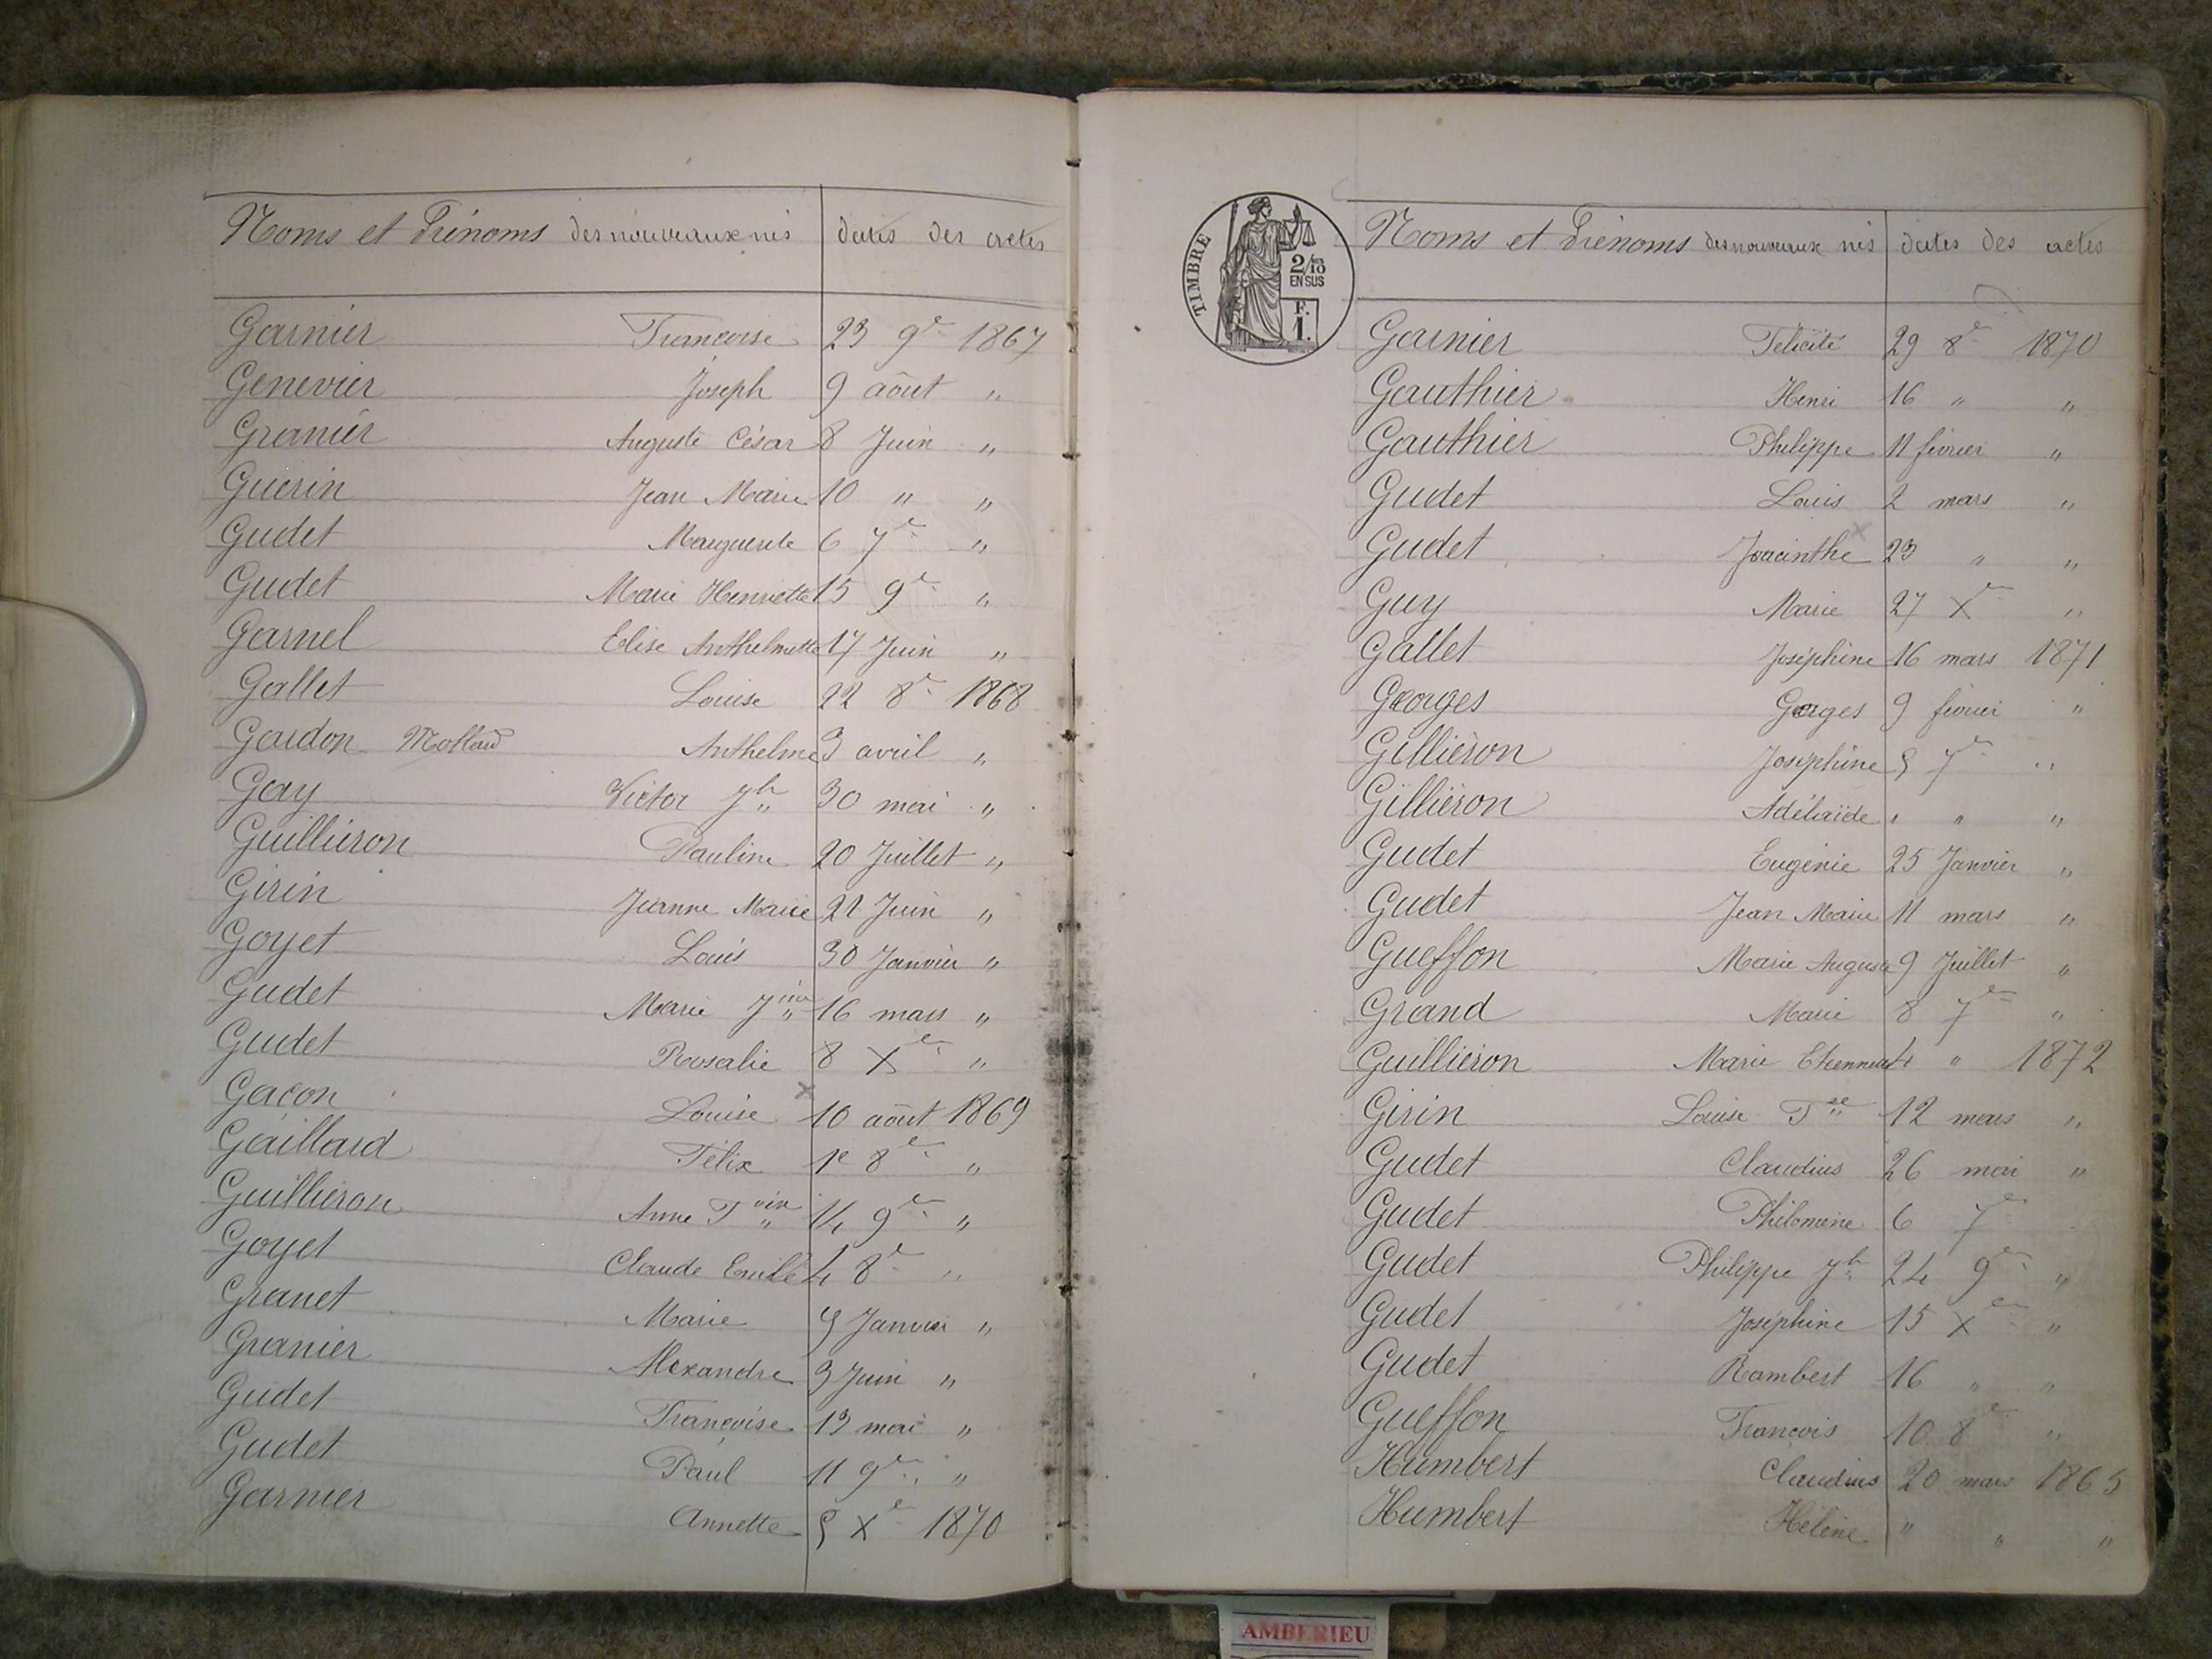 Noms et Prénoms des nouveaux nés dates des actes
Garnier Françoise 23 9e 1867
Genevier Joseph 9 aôut "
Granier Auguste César 8 Juin "
Guerin Jean Marie 10 " "
Gudet Marguerite 6 7e "
Gudet Marie Henriette 15 9e "
Garnel Elise Anthelmette 17 Juin "
Gallet Louise 22 8e 1868
Gardon Mollard Anthelme 3 avril "
Gay Victor Jh 30 mai "
Guilliéron Pauline 20 Juillet "
Girin Jeanne Marie 21 Juin "
Goyet Louis 30 Janvier "
Gudet Marie Jine 16 mars "
Gudet Rosalie 8 Xe "
Gacon Louise 10 aôut 1869
Gaillard Félix 1e 8e "
Guilliéron Anne 14 9e "
Goyet Claude Emile 4 8e "
Granet Marie 5 Janvier "
Granier Alexandre 3 Juin "
Gudet Françoise 13 mai "
Gudet Paul 11 9e "
Garnier Annette 5 Xe 1870
TIMBRE
2/10
EN SUS
F.
1.
Noms et Prénoms des nouveaux nés dates des actes
Garnier Félicité 29 8e 1870
Gauthier Henri 16 " "
Gauthier Philippe 11 février "
Gudet Louis 2 mars "
Gudet Joacinthe 23 " "
Guy Marie 27 Xe "
Gallet Joséphine 16 mars 1871
Georges Georges 9 février "
Gilliéron Joséphine 5 7e "
Gilliéron Adélaïde " " "
Gudet Eugénie 25 Janvier "
Gudet Jean Marie 11 mars "
Gueffon Marie Augusta 9 Juillet "
Grand Marie 8 7e "
Guilliéron Marie 4 " 1872
Girin Louise Fse 12 mars "
Gudet Claudius 26 mai "
Gudet Philomène 6 7e
Gudet Philippe Jh 24 9e "
Gudet Joséphine 15 Xe "
Gudet Rambert 16 " "
Gueffon François 10 8e "
Humbert Claudius 20 mars 1865
Humbert Hélène " " "
AMBERIEU